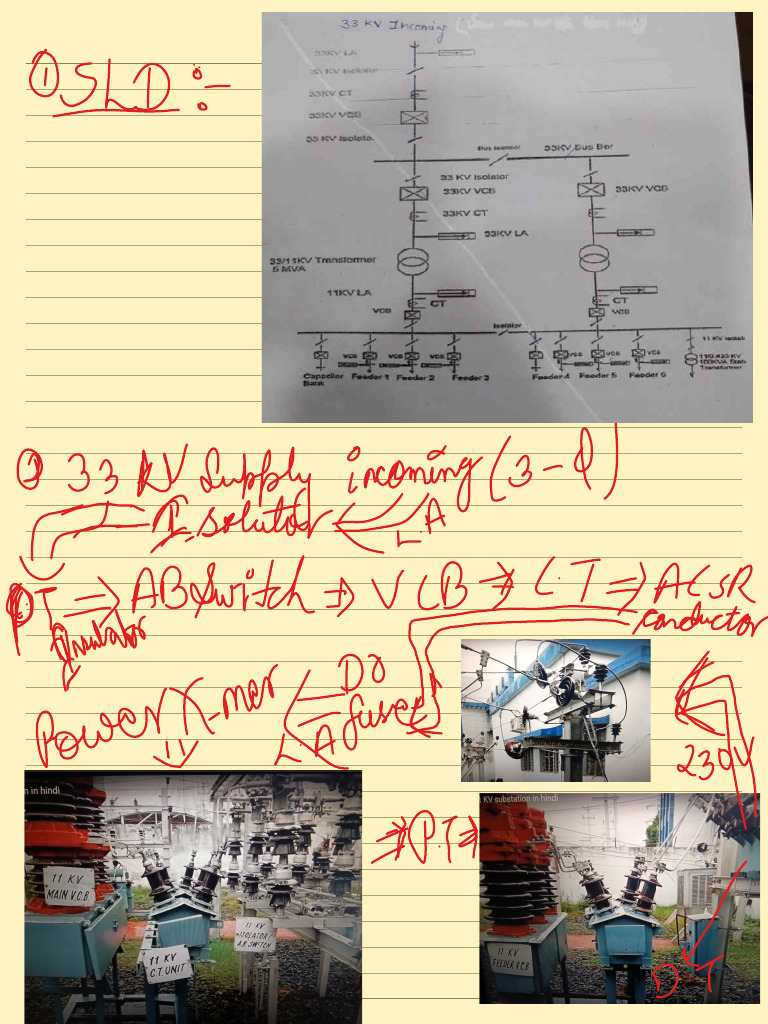 ① SLD :-
33 KV Incoming
33KV LA
33 KV Isolator
33KV CT
33KV VCB
33 KV Isolator
Bus Isolator
33KV Bus Bar
33 KV Isolator
33KV VCB
33KV VCB
33KV CT
33KV LA
33/11KV Transformer
5 MVA
11KV LA
CT
CT
VCB
VCB
Isolator
11 KV Isolat
VCB
VCB
VCB
VCB
Capacitor
Bank
Feeder 1
Feeder 2
Feeder 3
Feeder 4
Feeder 5
Feeder 6
Transformer
33 KV Supply incoming (3-Φ)
Isolator
L.A
PT ⇒ AB Switch ⇒ VCB ⇒ C.T ⇒ ACSR
conductor
Insulator
Power X-mer
Do
fuse
L.A
230V
n in hindi
KV substation in hindi
⇒ P.T ⇒
11 KV
MAIN V.C.B
11 KV
C.T. UNIT
11 KV
ISOLATOR
A.B. SWITCH
11 KV
FEEDER V.C.B
DT